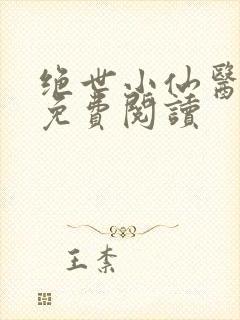 绝世小仙醫
免費閱讀
王柰